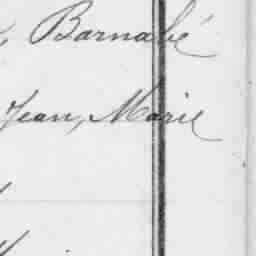 Barnabé
Jean, Marie